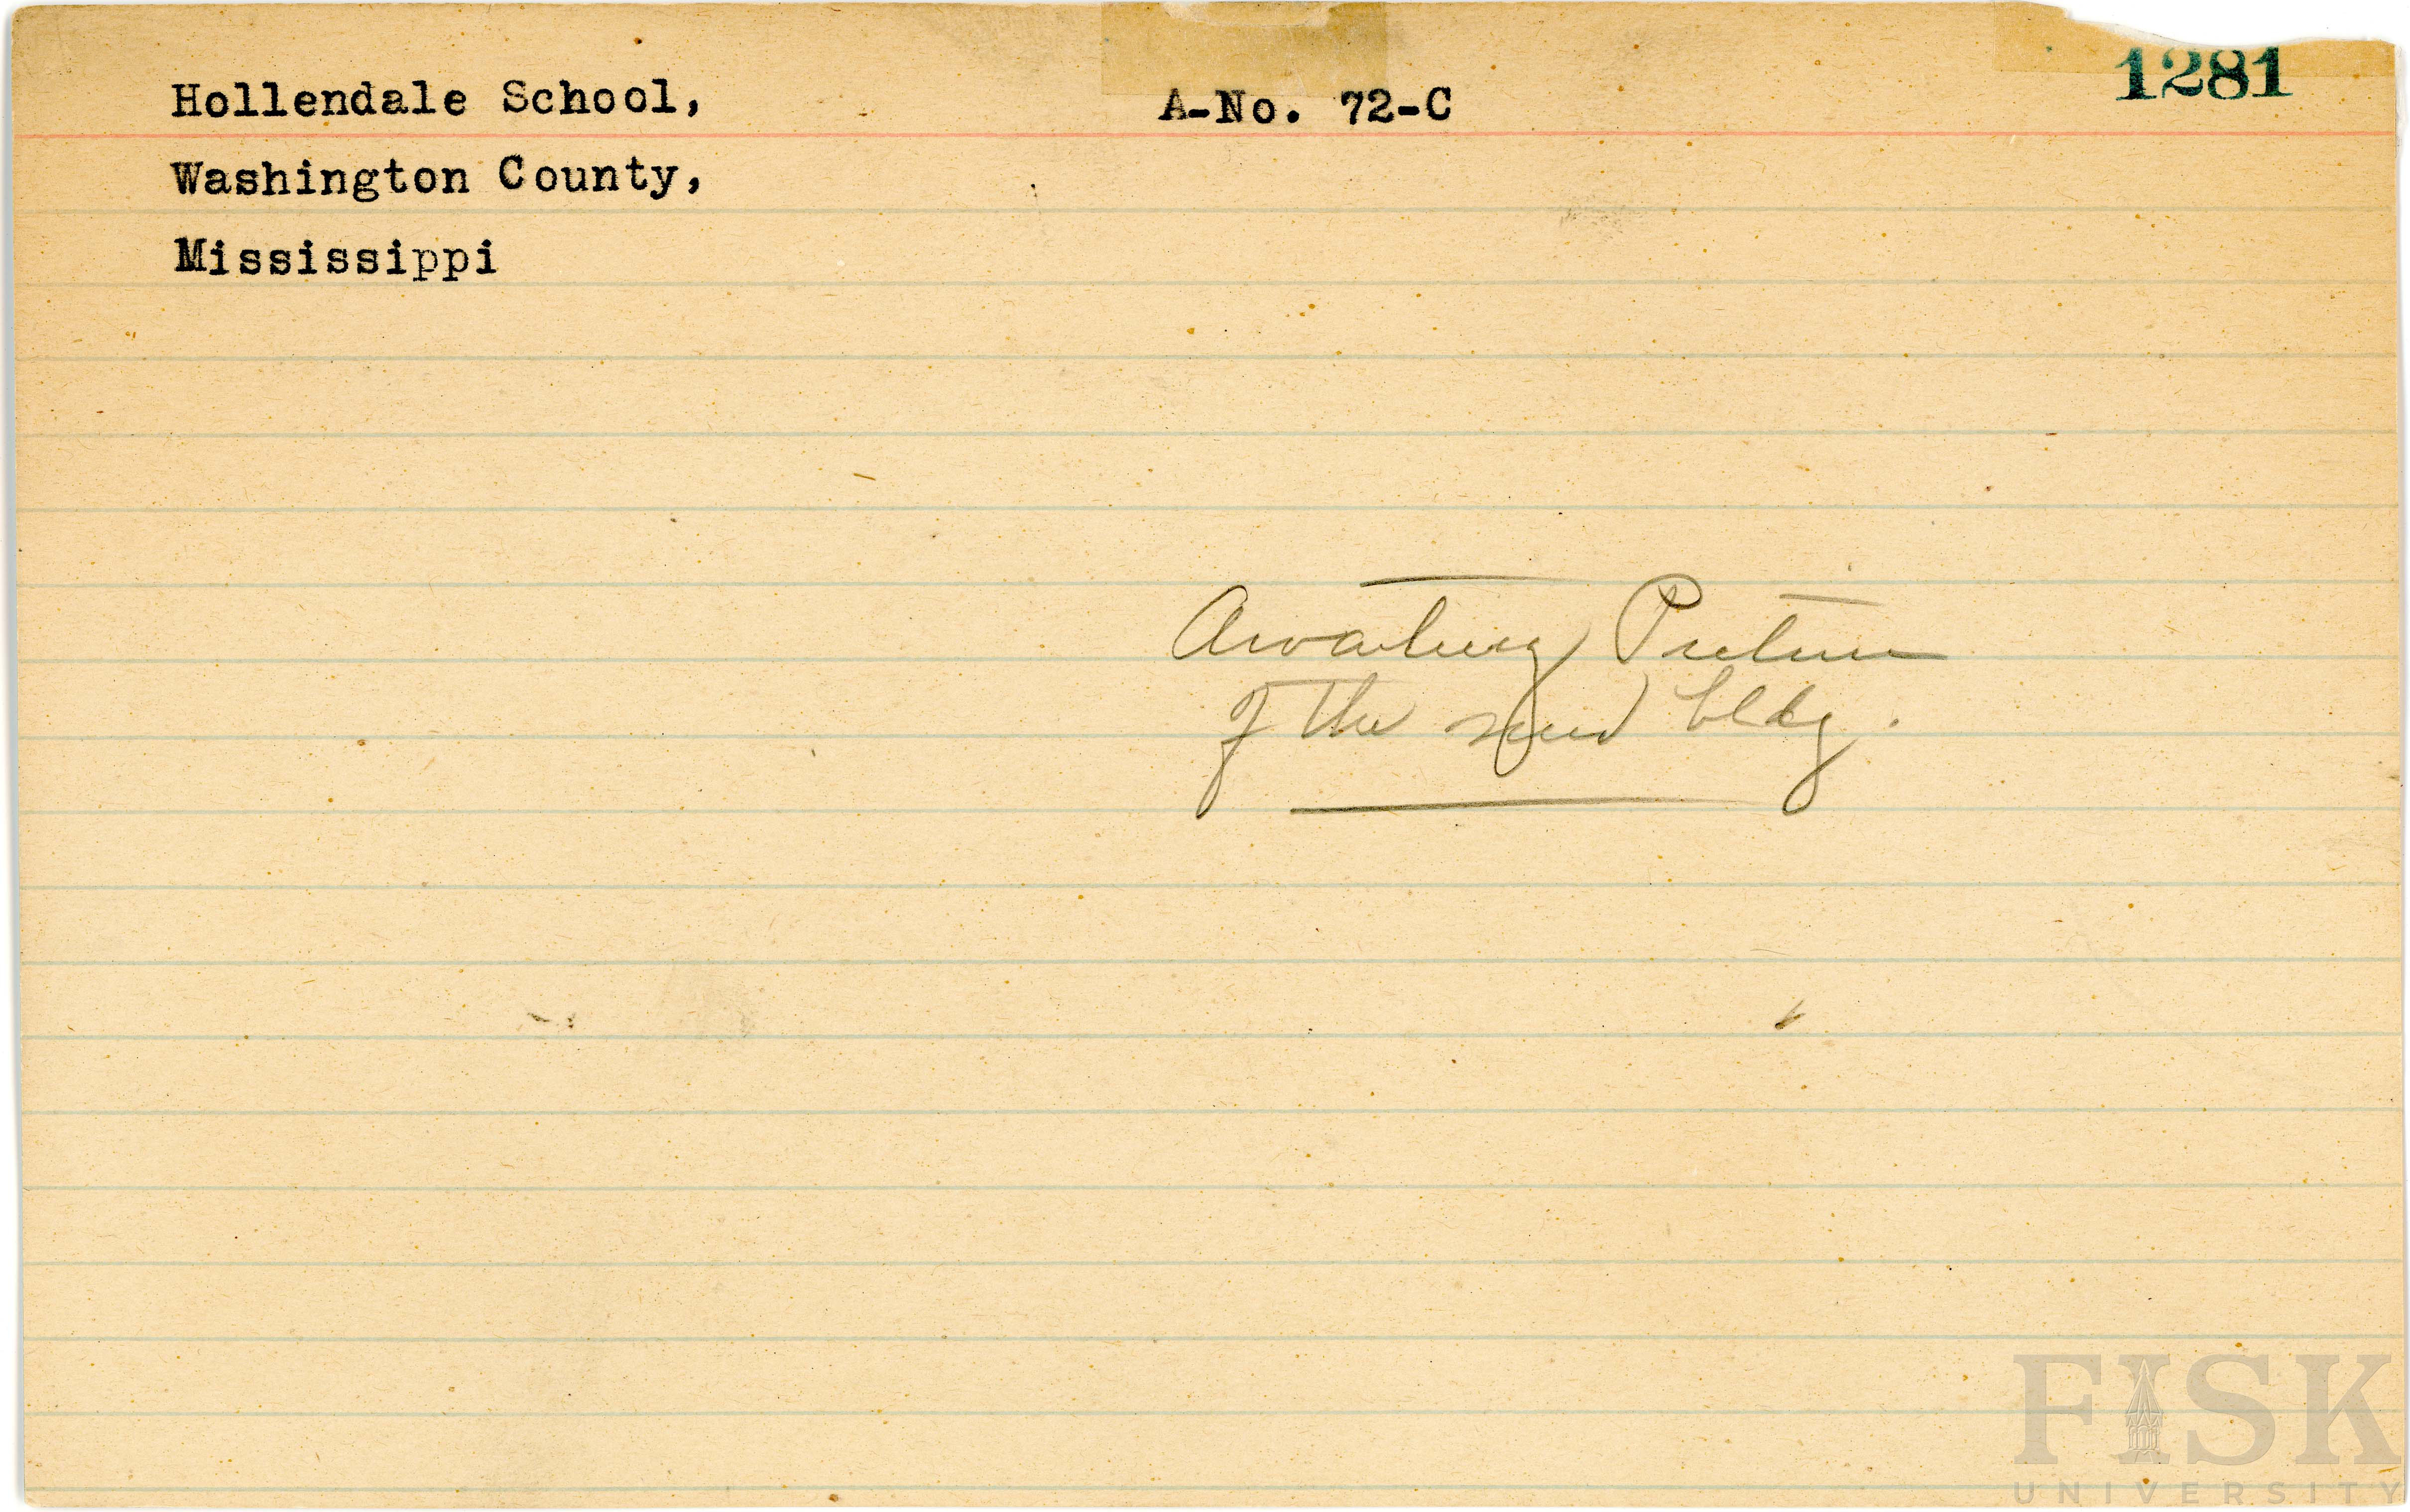 Hollendale School,
A-No. 72-C
1281
Washington County,
Mississippi
Awaiting Picture
of the new bldg.
FISK
UNIVERSITY